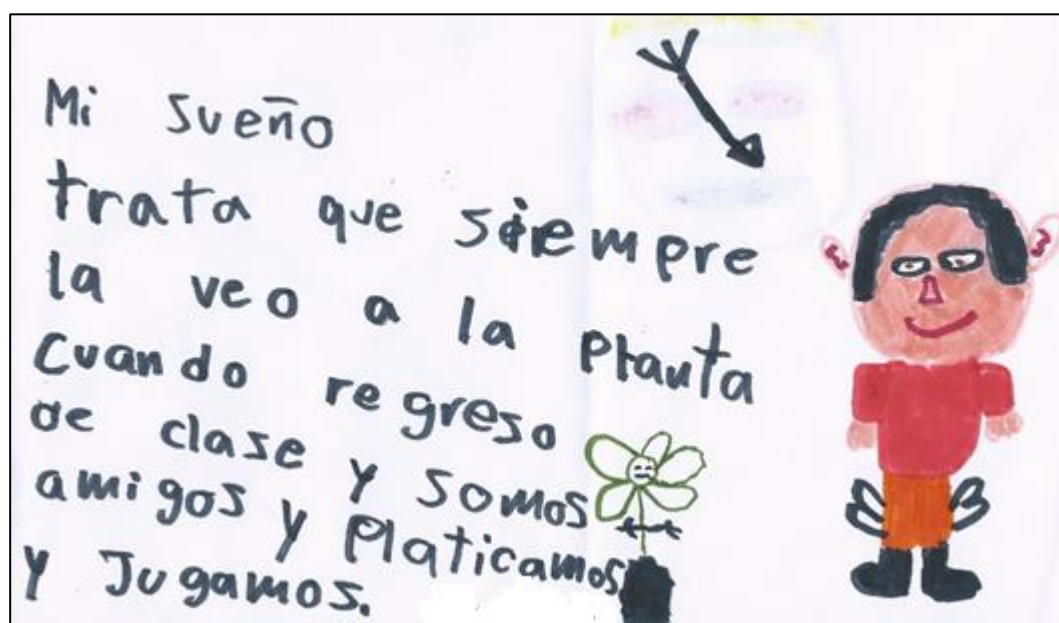 Mi sueño
trata que siempre
la veo a la planta
Cuando regreso
de clase y somos
amigos y Platicamos
y Jugamos.